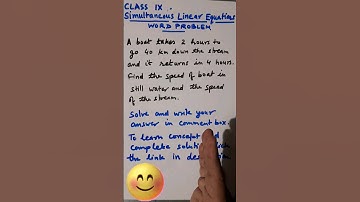 CLASS IX.
Simultaneous Linear Equations
WORD PROBLEM
A boat takes 2 hours to
go 40 km down the stream
and it returns in 4 hours.
Find the speed of boat in
still water and the speed
of the stream.
Solve and write your
answer in comment box.
To learn concept
complete solution
the link in